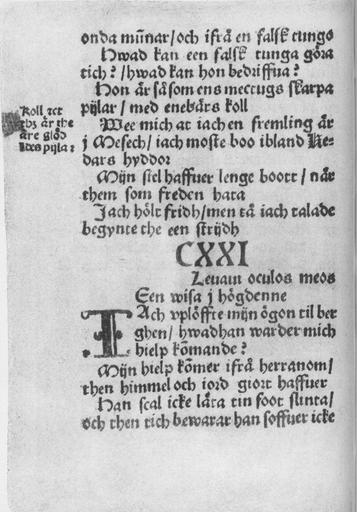 onda mūnar/och ifrå en falsk tungo
Hwad kan een falsk tunga göra
tich?/hwad kan hon bedriffua?
Hon är så som ens mectugs skarpa
pijlar/med enebärs koll
Wee mich at iach en fremling är
j Mesech/iach moste boo ibland Ke-
dars hyddor
Mijn siel haffuer lenge boott/när
them som freden hata
Jach hölt fridh/men tå iach talade
begynte the een strijdh
Koll 
thz är the
äre glöd
pijla:
CXXI
Leuaui oculos meos
Een wisa j högdenne
IAch vplöffte mijn ögon til ber
ghen/hwadhan warder mich
hielp kōmande?
Mijn hielp kōmer ifrå herranom/
then himmel och iord giort haffuer
Han scal icke låta tin foot slinta/
och then tich bewarar han soffuer icke